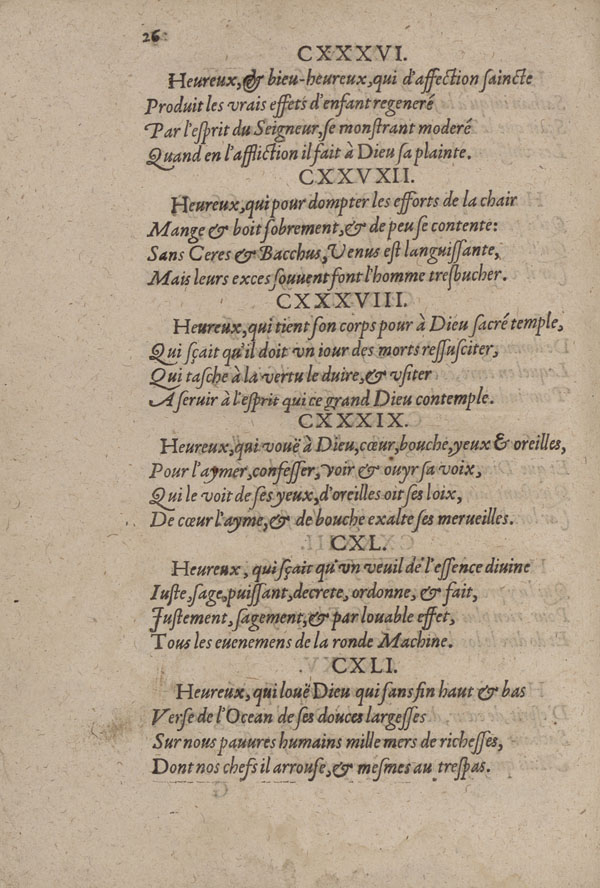 26
CXXXVI.
Heureux, & bieu-heureux, qui d'affection saincte
Produit les vrais effets d'enfant regeneré
Par l'esprit du Seigneur, se monstrant moderé
Quand en l'affliction il fait à Dieu sa plainte.
CXXVXII.
Heureux, qui pour dompter les efforts de la chair
Mange & boit sobrement, & de peu se contente:
Sans Ceres & Bacchus, Venus est languissante,
Mais leurs exces souuent font l'homme tresbucher.
CXXXVIII.
Heureux, qui tient son corps pour à Dieu sacré temple,
Qui sçait qu'il doit vn iour des morts ressusciter,
Qui tasche à la vertu le duire, & vsiter
A seruir à l'esprit qui ce grand Dieu contemple.
CXXXIX.
Heureux, qui vouë à Dieu, cœur, bouche, yeux & oreilles,
Pour l'aymer, confesser, voir & ouyr sa voix,
Qui le voit de ses yeux, d'oreilles oit ses loix,
De cœur l'ayme, & de bouche exalte ses merueilles.
CXL.
Heureux, qui sçait qu'vn veuil de l'essence diuine
Iuste, sage, puissant, decrete, ordonne, & fait,
Justement, sagement, & par louable effet,
Tous les euenemens de la ronde Machine.
CXLI.
Heureux, qui louë Dieu qui sans fin haut & bas
Verse de l'Ocean de ses douces largesses
Sur nous pauures humains mille mers de richesses,
Dont nos chefs il arrouse, & mesmes au trespas.